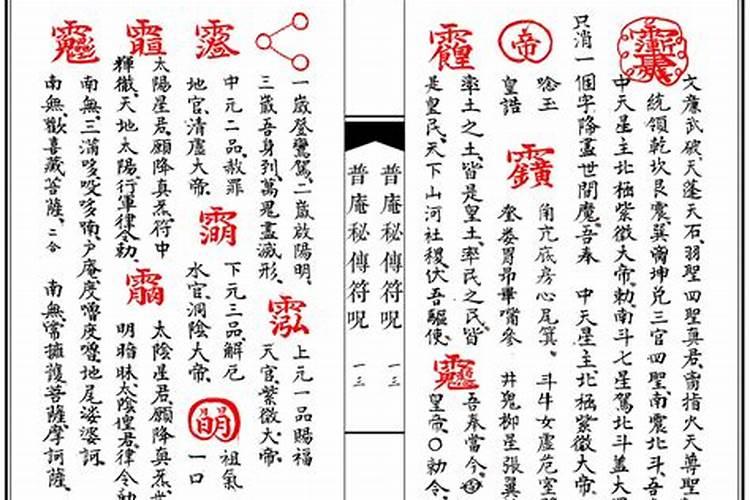 文廉武破天蓬天石羽聖四聖真君雷指火天尊聖
統領乾坎艮震巽离坤兌三官四聖南震北斗吾
中天星主北極紫微大帝勅南斗七星駕北斗蓋大
只消一個字降盡世間魔吾奉 中天星主北極紫微大帝
唸玉 角亢氐房心尾箕 斗牛女虛危室
皇誥 奎婁胃昴畢嘴參 井鬼柳星張翼
率土之土皆是皇土率民之民皆 吾奉當今
是皇民天下山河社稷伏吾驅使 皇帝〇勅令
帝
普庵秘傳符呪 一三
普庵秘傳符呪 一三
一歲登鸞駕二歲放陽明 上元一品賜福
三歲吾身列萬鬼盡滅形 天官紫微大帝
中元二品赦罪 下元三品解厄 祖氣
地官清虛大帝 水官洞陰大帝 一口
太陽星君願降真炁符中 太陰星君願降真炁
輝徹天地太陽行軍律令勅 明暗昧太陰皇君律令
南無三滿哆 地尾娑婆訶
南無歡喜藏菩薩二合 南無常擁護菩薩摩訶薩